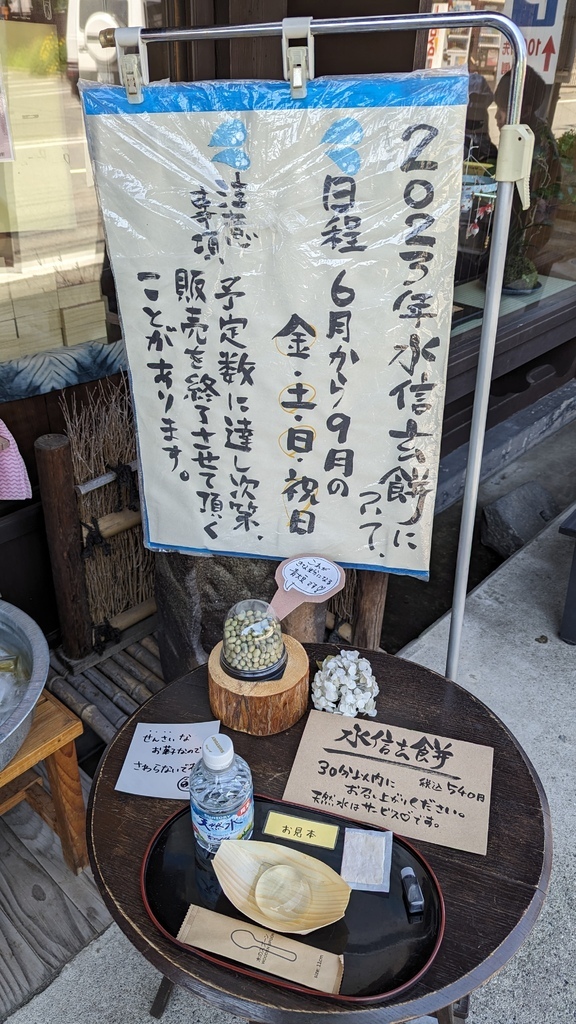 2023年水信玄餅に
ついて、
日程 6月から9月の
金・土・日・祝日
注意
事項
予定数に達し次第、
販売を終了させて頂く
ことがあります。
これが
きな粉になる
青大豆です
せんさいな
お菓子なので
さわらないで
水信玄餅
30分以内に 税込540円
お召し上がりください。
天然水はサービス♡です。
天然水
お見本
木のスプーン
10
P